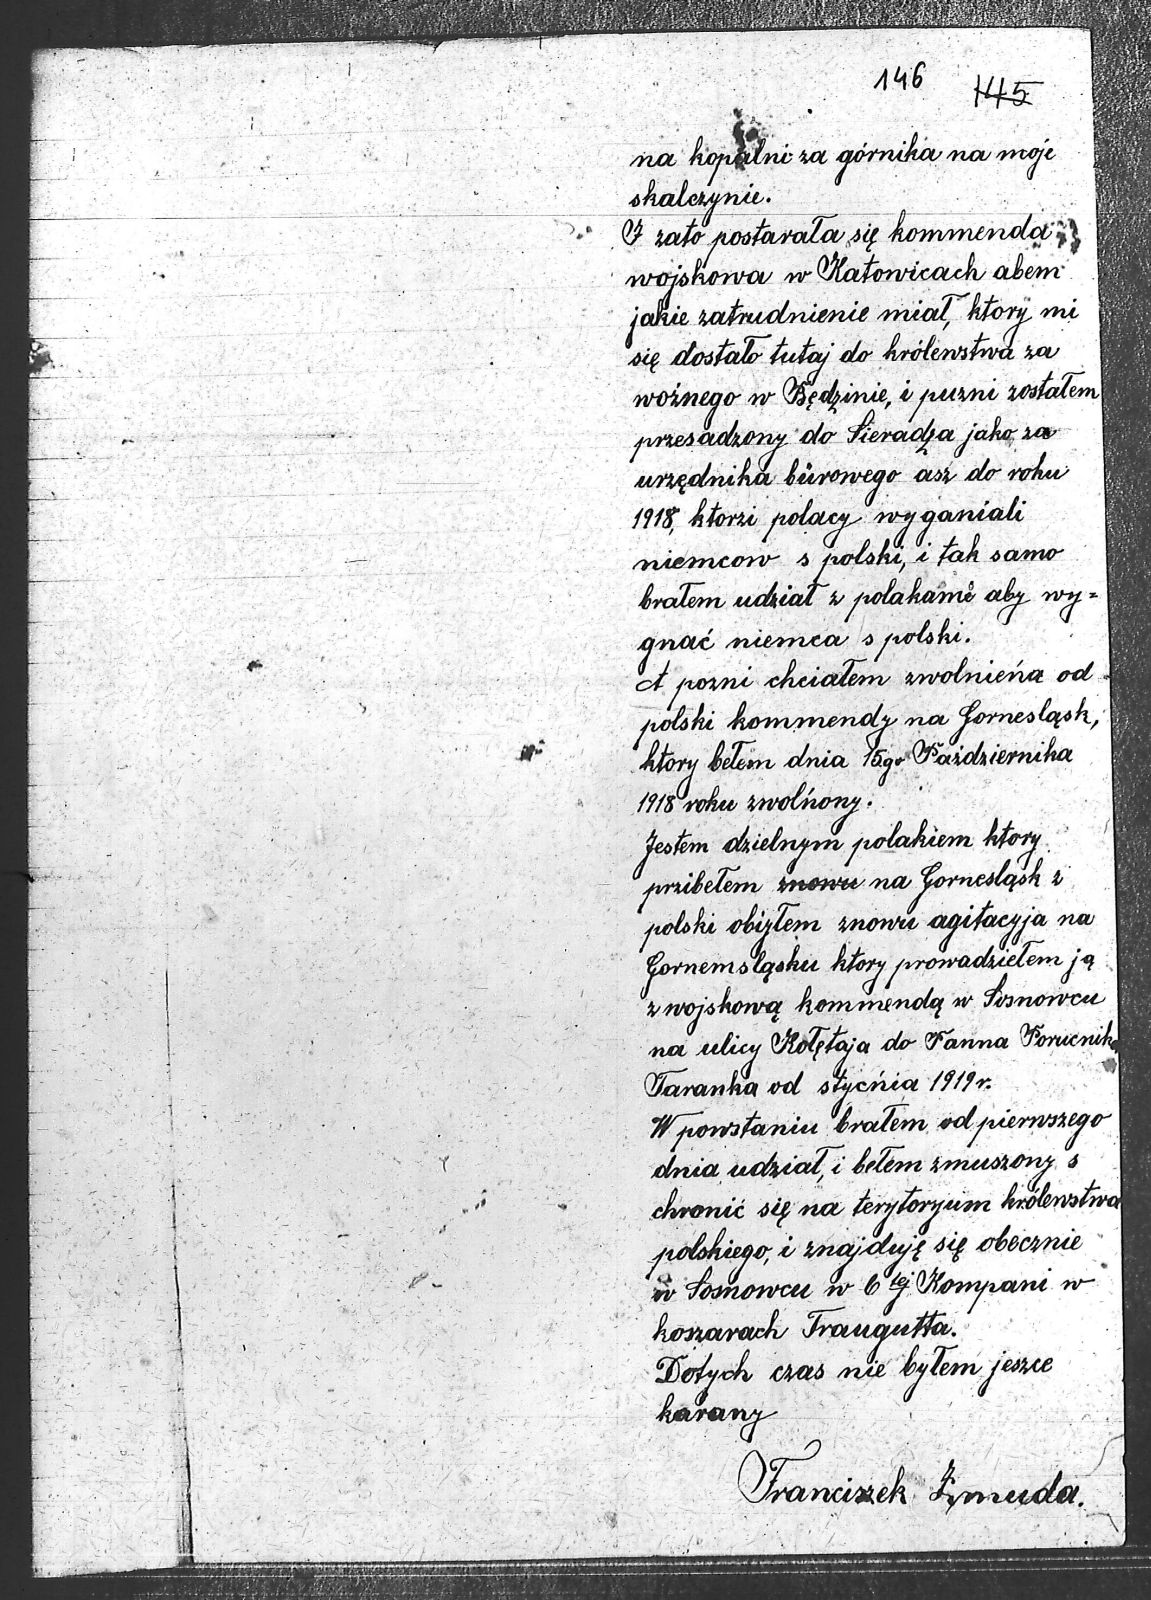 146 145
na kopalni za górnika na moje
skalczynie.
I zato postarała się kommenda
wojskowa w Katowicach abem
jakie zatrudnienie miał, ktory mi
się dostało tutaj do królewstwa za
woźnego w Będzinie, i puzni zostałem
przesadzony do Sieradza jako za
urzędnika bürowego asz do roku
1918, ktorzi polacy wyganiali
niemcow s polski, i tak samo
brałem udział z polakami aby wy=
gnać niemca s polski.
A pozni chciałem zwolnieńa od
polski kommendy na Gornesląsk,
ktory bełem dnia 15go Października
1918 roku zwolńony.
Jestem dzielnym polakiem ktory
przibełem znowu na Gornesląsk z
polski obizłem znowu agitacyja na
Gornemsląsku ktory prowadziełem ją
z wojskową kommendą w Sosnowcu
na ulicy Kołętaja do Panna Porucnika
Taranka od styćnia 1919 r.
W powstaniu brałem od pierwszego
dnia udział, i bełem zmuszony s
chronić się na terytoryum królewstwa
polskiego, i znajduję się obecznie
w Sosnowcu w 6tej Kompani w
koszarach Traugutta.
Dotych czas nie byłem jeszce
karany
Franciszek Żmuda.